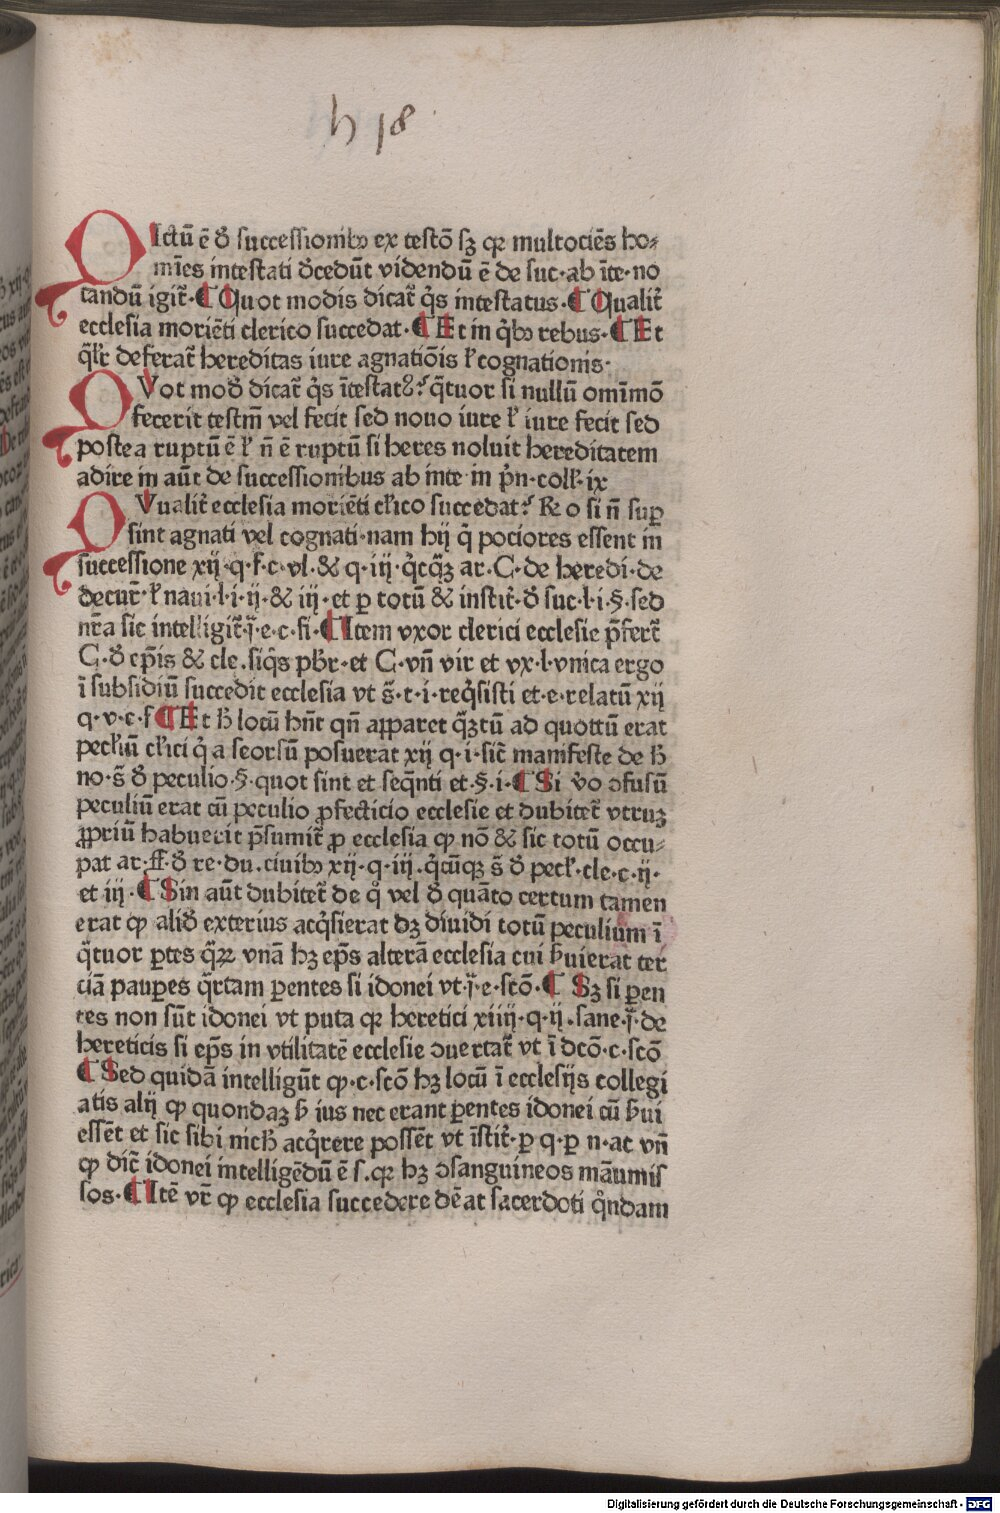 h 18
DIctū ē ð successionibꝫ ex testō sꝫ qꝛ multociēs ho⸗
mīes intestati ðcedūt videndū ē de suc·ab īte·no
tandū igit̃·¶ Quot modis dicat̃ q̇s intestatus·¶ Qualit̃
ecclesia moriēti clerico succedat·¶ Et in q̇bꝫ rebus·¶ Et
q̄lr̃ deferat̃ hereditas iure agnatiōis ł cognationis·
QVot moð dicat̃ q̇s ītestatꝰ? q̄tuor si nullū omīmō
fecerit testm̄ vel fecit sed nouo iure ł iure fecit sed
postea ruptū ē ł n̄ ē ruptū si heres noluit hereditatem
adire in aūt de successionibus ab inte in p̃n·coll·ix
QVualit̃ ecclesia moriēti cł̃ico succedat? R̃o si n̄ suꝑ
sint agnati vel cognati·nam hij q̇ pociores essent in
successione xij·q·f·c·vl·& q·iij q̇cq̄ꝫ ar·C·de heredi·de
decur̃·ł naui·l·i·ij·& iij·et ꝑ totū & instit̃·ð suc·l·i·§·sed
nr̄a sic intelligit̃·j̄·e·c·fi·¶ Item vxor clerici ecclesie p̄fert̃
C·ð ep̄is & cle·siq̇s pbr̃·et C·vn̄ vir et vx·l·vnica ergo
ī subsidiū succedit ecclesia vt s̄·t·i·req̇sisti et·e·relatū xij
q·v·c·f ¶ Et ħ locū hn̄t qn̄ apparet q̄ꝫtū ad quottū erat
pecłiū cłici q̇ a seorsū posuerat xij q·i·sic̃ manifeste de ħ
no·s̄ ð peculio·§·quot sint et seq̄nti et·§·i·¶ Si v̊o ɔfusū
peculiū erat cū peculio ꝓfecticio ecclesie et dubitet̃ vtruꝫ
ꝓpriū habuerit p̄sumit̃ ꝓ ecclesia qꝫ nō & sic totū occu⸗
pat ar·ff·ð re·du.ciuibꝫ xij·q·iij·q̇cūqꝫ s̄ ð pecł·cle·c·ij·
et iij·¶ Sin aūt dubitet̃ de q̊ vel ð quāto certum tamen
erat qꝫ alið exterius acq̇sierat dꝫ diuidi totū peculium ī
q̄tuor ꝑtes q̄ꝝ vnā hꝫ ep̄s alterā ecclesia cui ẜuierat ter
ciā pauꝑes q̄rtam ꝑentes si idonei vt·j̄·e·scō·¶ Sꝫ si ꝑen
tes non sūt idonei vt puta qꝛ heretici xiiij·q·ij·sane·j̄·de
hereticis si ep̄s in vtilitatē ecclesie ɔuertat̃ vt ī dc̄ō·c·scō
¶ Sed quidā intelligūt qꝫ·c·scō hꝫ locū ī ecclesijs collegi
atis alij qꝫ quondaꝫ ẜ ius nec erant ꝑentes idonei cū ẜui
essēt et sic sibi nicħ acq̇rere possēt vt īstit̃·ꝑ q·ꝑ n·ac vn̄
qꝫ dic̃ idonei intelligēdū ē ſ.qꝛ hꝫ ɔsanguineos māumis
sos·¶ Itē vr̄ qꝫ ecclesia succedere dēat sacerdoti q̇ndam
Digitalisierung gefördert durch die Deutsche Forschungsgemeinschaft - DFG